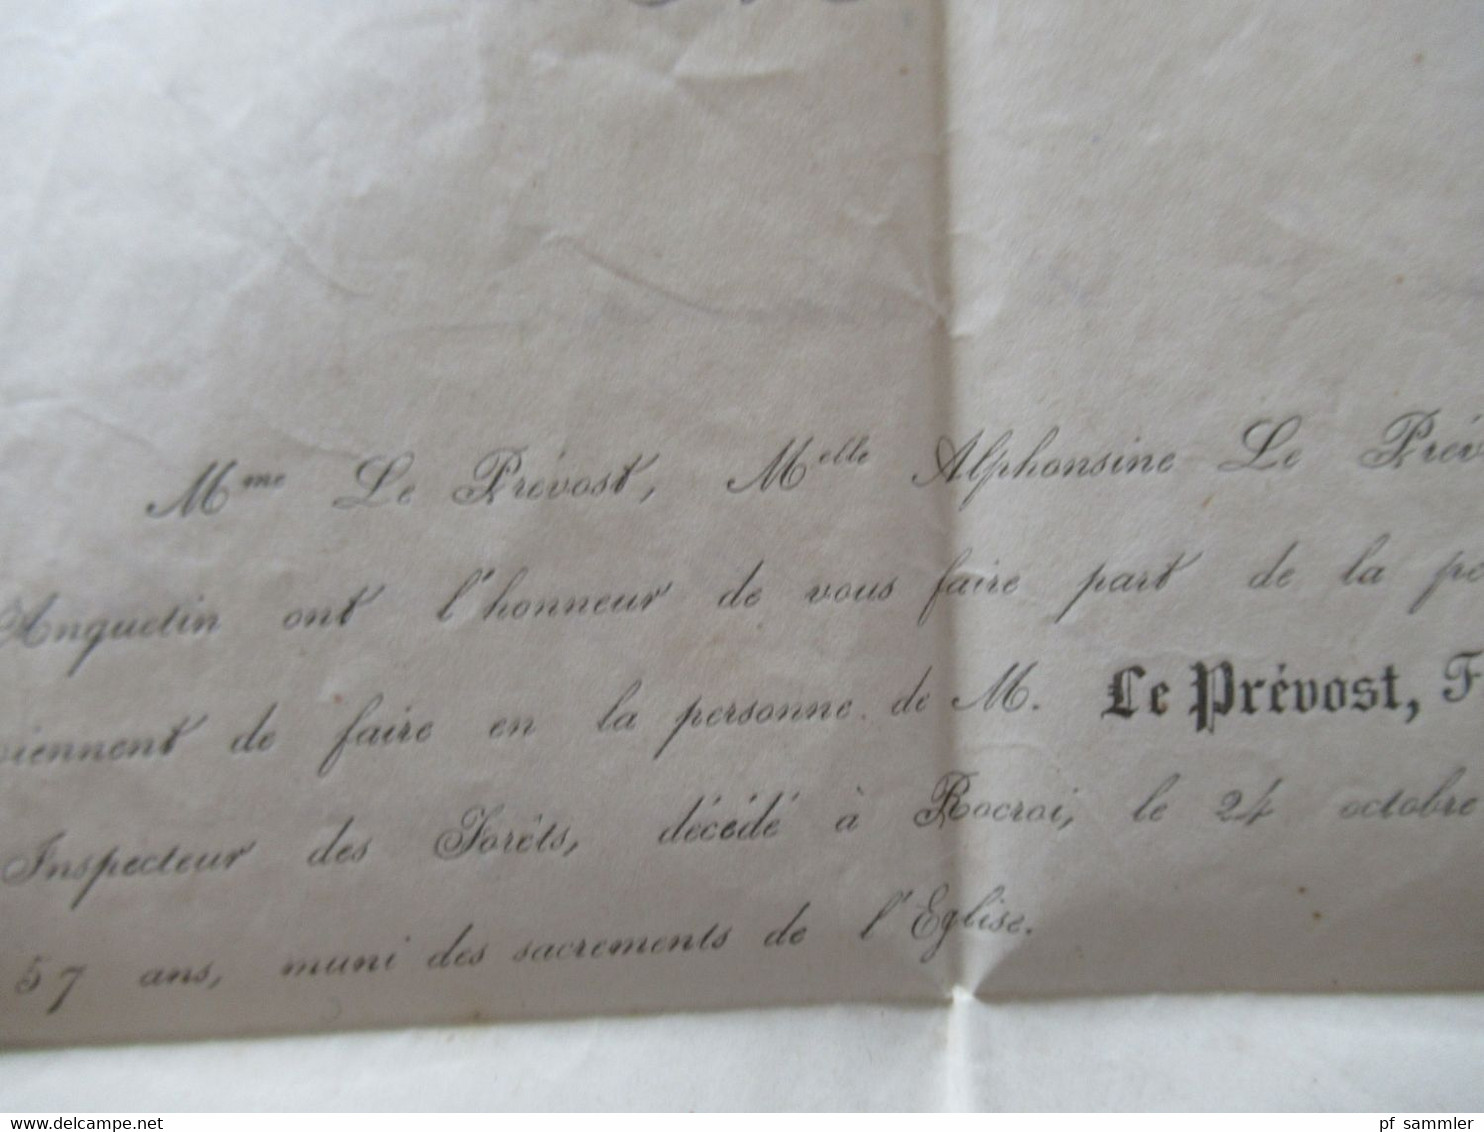 Mme Le Prévost, Melle Alphonsine Le Prév
Anquetin ont l'honneur de vous faire part de la pe
viennent de faire en la personne de M. Le Prévost, F
Inspecteur des Forêts, décédé à Rocroi, le 24 octobre
57 ans, muni des sacrements de l'Eglise.
www.delcampe.net
pf_sammler